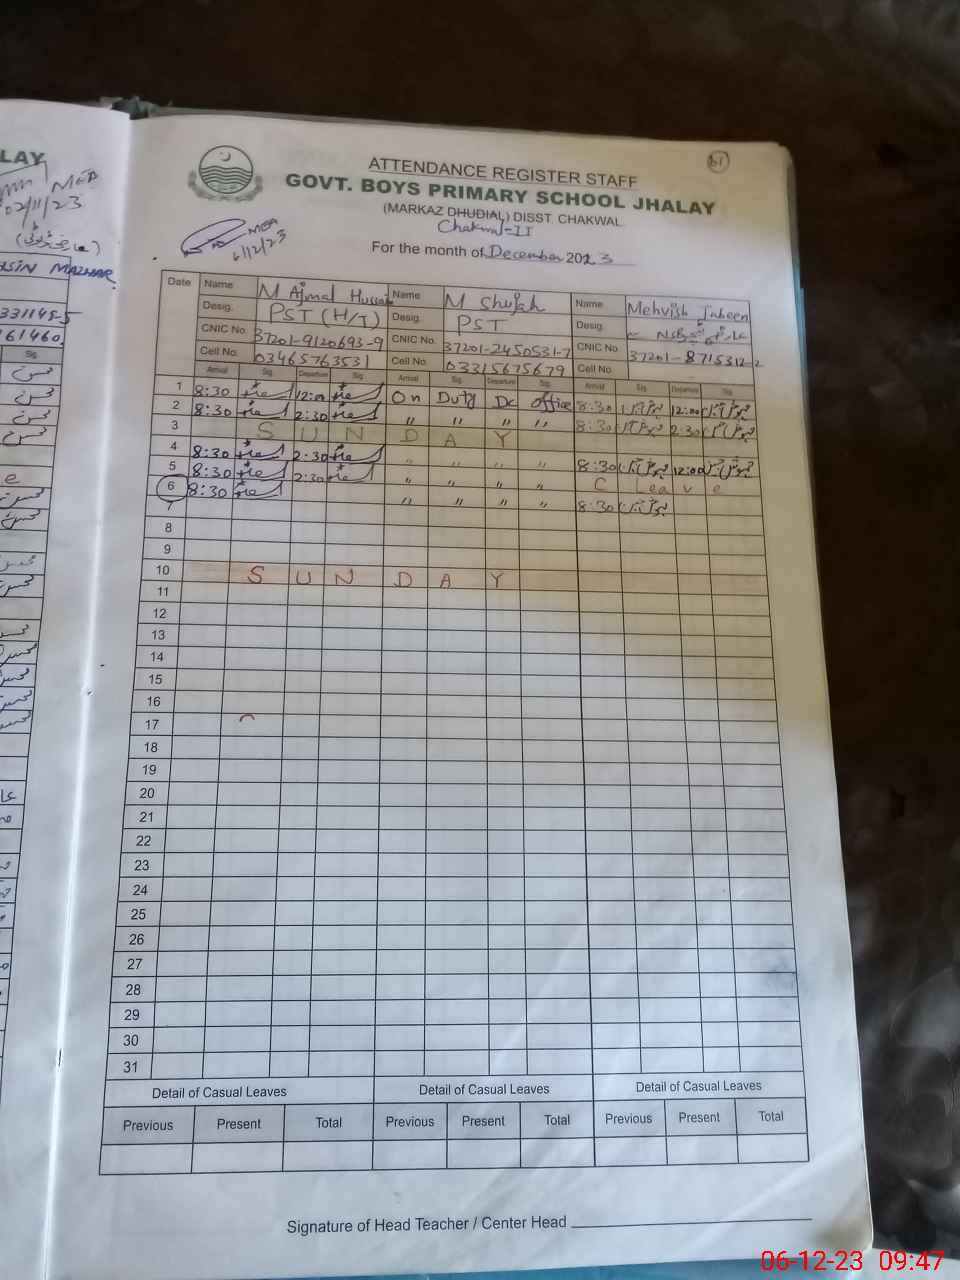 LAY
MEA
02/11/23
MAZHAR
161460
Sig.
61
ATTENDANCE REGISTER STAFF
GOVT. BOYS PRIMARY SCHOOL JHALAY
(MARKAZ DHUDIAL) DISST. CHAKWAL
Chakwal-II
MEA
6/12/23
For the month of December 2023
Date Name M Ajmal Hussain Name M Shujah Name Mehvish Jabeen
Desig. PST (H/T) Desig. PST Desig.
CNIC No. 37201-9120693-9 CNIC No. 37201-2450531-7 CNIC No. 37201-8715312-2
Cell No. 03465763531 Cell No. 03315675679 Cell No.
Arrival Sig. Departure Sig. Arrival Sig. Departure Sig. Arrival Sig. Departure Sig.
1 8:30 12:00 On Duty Dc office 8:30 12:00
2 8:30 2:30 " " " " 8:30 2:30
3 S U N D A Y
4 8:30 2:30 " " " " 8:30 12:00
5 8:30 2:30 " " " " C Leave
6 8:30 " " " " 8:30
7
8
9
10 S U N D A Y
11
12
13
14
15
16
17
18
19
20
21
22
23
24
25
26
27
28
29
30
31
Detail of Casual Leaves Detail of Casual Leaves Detail of Casual Leaves
Previous Present Total Previous Present Total Previous Present Total
Signature of Head Teacher / Center Head
06-12-23 09:47